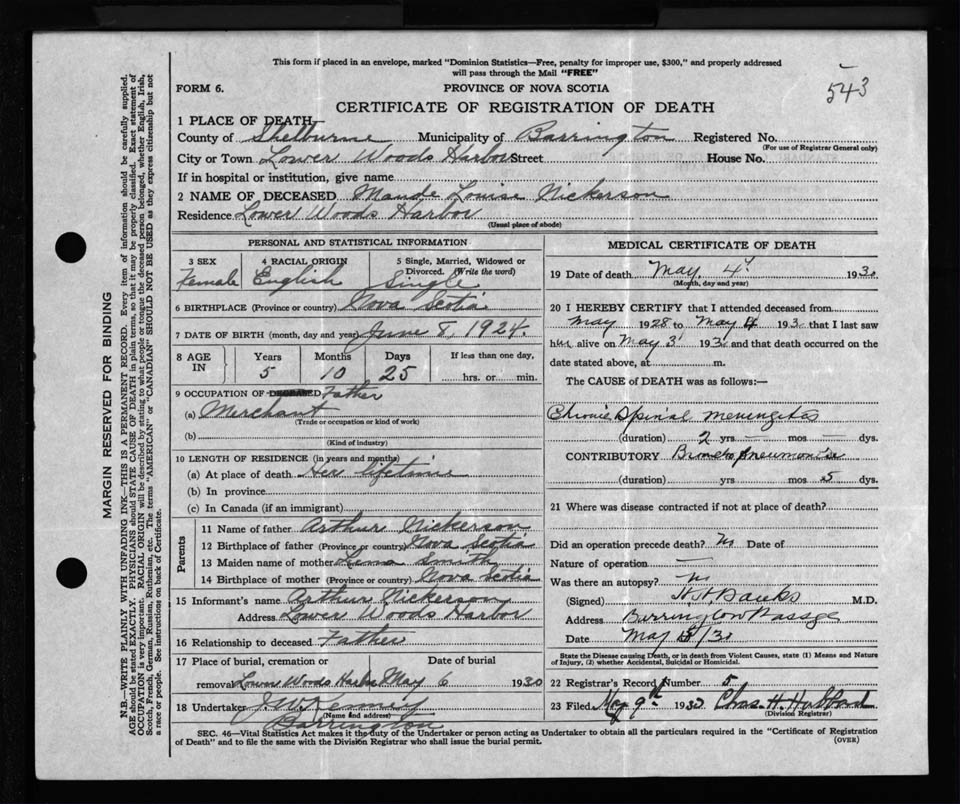 This form if placed in an envelope, marked "Dominion Statistics—Free, penalty for improper use, $300," and properly addressed
will pass through the Mail "FREE"
543
FORM 6.
PROVINCE OF NOVA SCOTIA
CERTIFICATE OF REGISTRATION OF DEATH
1 PLACE OF DEATH
County of Shelburne Municipality of Barrington Registered No.
(For use of Registrar General only)
City or Town Lower Woods Harbor Street House No.
If in hospital or institution, give name
2 NAME OF DECEASED Maude Louise Nickerson
Residence Lower Woods Harbor
(Usual place of abode)
PERSONAL AND STATISTICAL INFORMATION
3 SEX 4 RACIAL ORIGIN 5 Single, Married, Widowed or
Divorced. (Write the word)
Female English Single
6 BIRTHPLACE (Province or country) Nova Scotia
7 DATE OF BIRTH (month, day and year) June 8, 1924.
8 AGE IN Years Months Days If less than one day,
5 10 25 hrs. or min.
9 OCCUPATION OF DECEASED Father
(a) Merchant
(Trade or occupation or kind of work)
(b)
(Kind of industry)
10 LENGTH OF RESIDENCE (in years and months)
(a) At place of death Her lifetime
(b) In province
(c) In Canada (if an immigrant)
Parents
11 Name of father Arthur Nickerson
12 Birthplace of father (Province or country) Nova Scotia
13 Maiden name of mother Lena Smith
14 Birthplace of mother (Province or country) Nova Scotia
15 Informant's name Arthur Nickerson
Address Lower Woods Harbor
16 Relationship to deceased Father
17 Place of burial, cremation or Date of burial
removal Lower Woods Harbor May 6 1930
18 Undertaker J. W. Kenney
(Name and address)
Barrington
MEDICAL CERTIFICATE OF DEATH
19 Date of death May 4 1930
(Month, day and year)
20 I HEREBY CERTIFY that I attended deceased from
May 1928 to May 4 193 that I last saw
her alive on May 3 193 and that death occurred on the
date stated above, at m.
The CAUSE of DEATH was as follows:—
Chronic Spinal meningitas
(duration) 2 yrs — mos — dys.
CONTRIBUTORY Broncho pneumonia
(duration) yrs mos 5 dys.
21 Where was disease contracted if not at place of death?
Did an operation precede death? No Date of
Nature of operation —
Was there an autopsy? No
(Signed) H. H. Banks M.D.
Address Barrington Passage
Date May 5/30
State the Disease causing Death, or in death from Violent Causes, state (1) Means and Nature
of Injury, (2) whether Accidental, Suicidal or Homicidal.
22 Registrar's Record Number 5
23 Filed May 9th 1930 Chas. H. Hubbard
(Division Registrar)
SEC. 46—Vital Statistics Act makes it the duty of the Undertaker or person acting as Undertaker to obtain all the particulars required in the "Certificate of Registration
of Death" and to file the same with the Division Registrar who shall issue the burial permit.
(OVER)
MARGIN RESERVED FOR BINDING
N.B.—WRITE PLAINLY WITH UNFADING INK—THIS IS A PERMANENT RECORD. Every item of information should be carefully supplied.
AGE should be stated EXACTLY. PHYSICIANS should STATE CAUSE OF DEATH in plain terms, so that it may be properly classified. Exact statement of
OCCUPATION is very important. RACIAL ORIGIN will be described by stating to what people or tongue the deceased person belonged, whether English, Irish,
Scotch, French, German, Russian, Ruthenian, etc. The terms "AMERICAN" or "CANADIAN" SHOULD NOT BE USED as they express citizenship but not
a race or people. See instructions on back of Certificate.